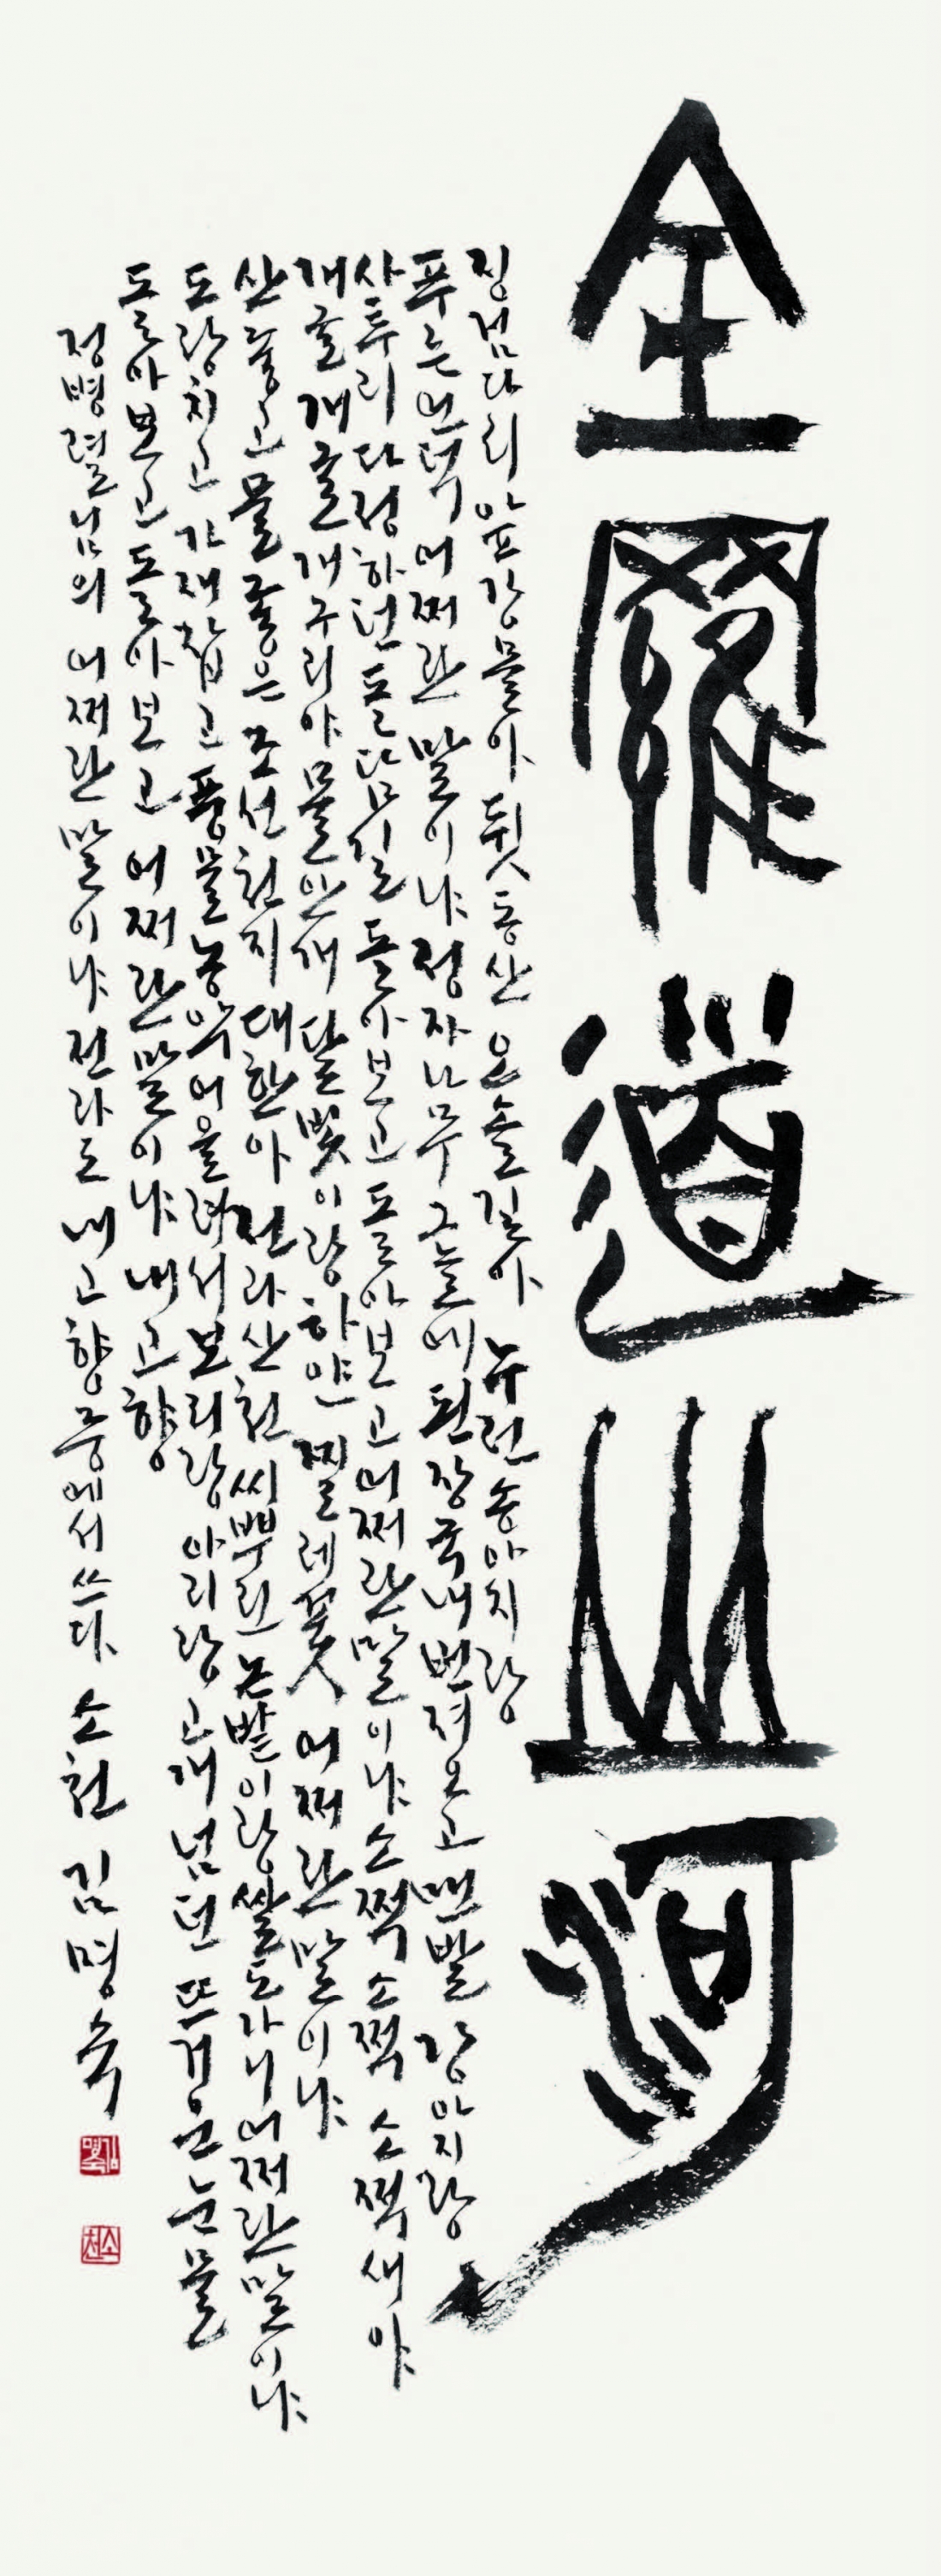 全羅道山河
징검다리 앞 강물아 뒷동산 오솔길아 누런 송아지랑
푸른 언덕 어쩌란 말이냐 정자나무 그늘에 된장국내 번져오고 맨발 강아지랑
사투리 다정하던 돌담길 돌아보고 돌아보고 어쩌란 말이냐 소쩍 소쩍 소쩍새야
개굴개굴 개구리야 물안개 달빛이랑 하얀 찔레꽃 어쩌란 말이냐
산 좋고 물 좋은 조선천지 대한아 전라산천 씨뿌린 논밭이랑 쌀도가니 어쩌란 말이냐
도랑치고 가재잡고 풍물농악 어울려서 보리랑 아리랑고개 넘던 뜨거운 눈물
돌아보고 돌아보고 어쩌란 말이냐 내고향
정병렬님의 어쩌란 말이냐 전라도 내고향 중에서 쓰다 소천 김명숙
김명숙
소천